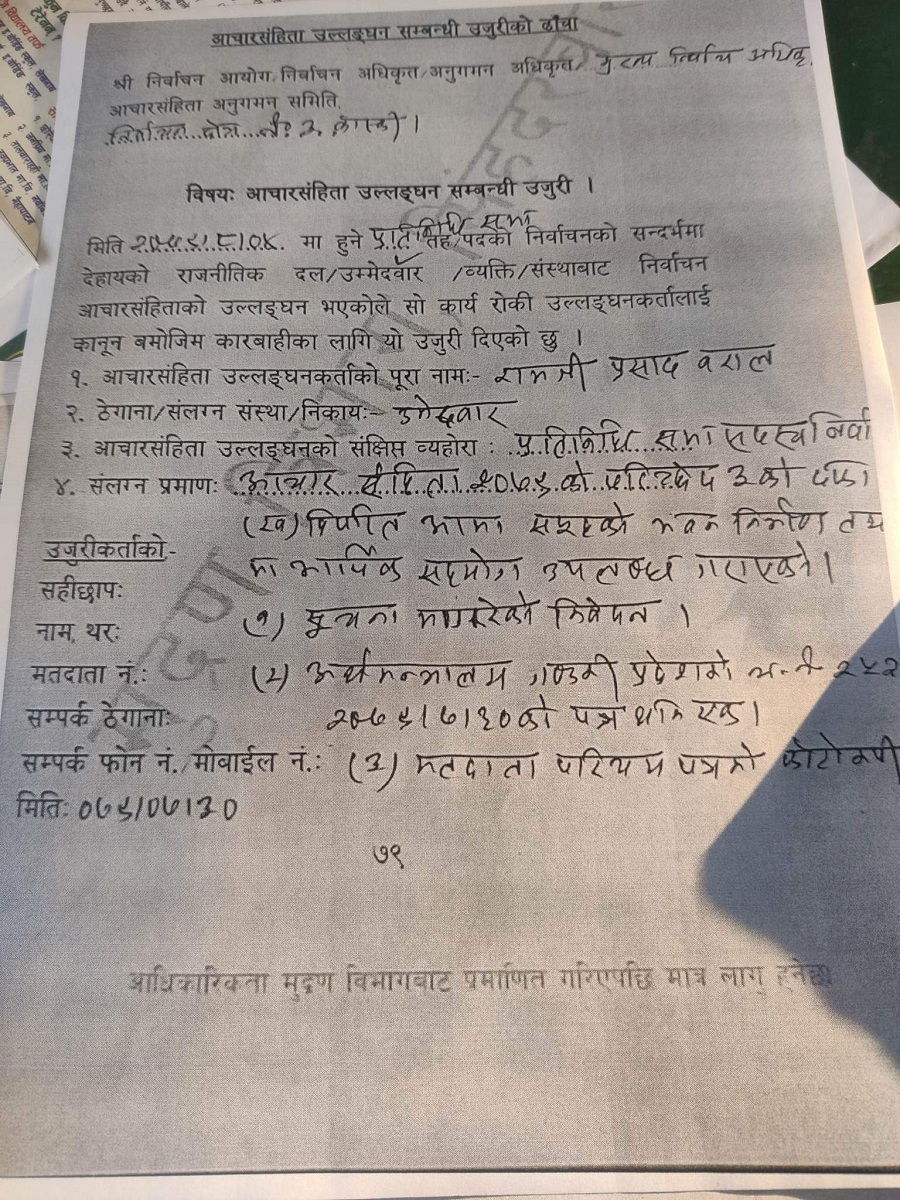 आचारसंहिता उल्लङ्घन सम्बन्धी उजुरीको ढाँचा
श्री निर्वाचन आयोग/निर्वाचन अधिकृत/अनुगमन अधिकृत/ मुख्य निर्वाचन अधिकृ
आचारसंहिता अनुगमन समिति,
निर्वाचन क्षेत्र नं. २ कास्की ।
विषयः आचारसंहिता उल्लङ्घन सम्बन्धी उजुरी ।
मिति २०७९।८।०४ मा हुने प्रतिनिधि सभा तह/पदको निर्वाचनको सन्दर्भमा
देहायको राजनीतिक दल/उम्मेदवार /व्यक्ति/संस्थाबाट निर्वाचन
आचारसंहिताको उल्लङ्घन भएकोले सो कार्य रोकी उल्लङ्घनकर्तालाई
कानून बमोजिम कारबाहीका लागि यो उजुरी दिएको छु ।
१. आचारसंहिता उल्लङ्घनकर्ताको पूरा नामः- रामजी प्रसाद बराल
२. ठेगाना/संलग्न संस्था/निकायः- उमेद्वार
३. आचारसंहिता उल्लङ्घनको संक्षिप्त व्यहोरा : प्रतिनिधि सभा सदस्य निर्वा
४. संलग्न प्रमाणः आचार संहिता २०७९ को परिच्छेद ३ को दफा
(२ख) विपरित आमा समूहको भवन निर्माण
उजुरीकर्ताको,-
मा आर्थिक सहयोग उपलब्ध गराएको ।
सहीछापः
नाम, थरः (१) सूचना निवेदन ।
मतदाता नं.: (२) अर्थमन्त्रालय गण्डकी प्रदेशको
सम्पर्क ठेगानाः २०७९।७।३० को पत्र थान एक ।
सम्पर्क फोन नं./मोबाईल नं.: (३) मतदाता परिचय पत्रको फोटोकपी
मितिः ०७९/०७/३०
७९
आधिकारिकता मुद्रण विभागबाट प्रमाणित गरिएपछि मात्र लागू हुनेछ।